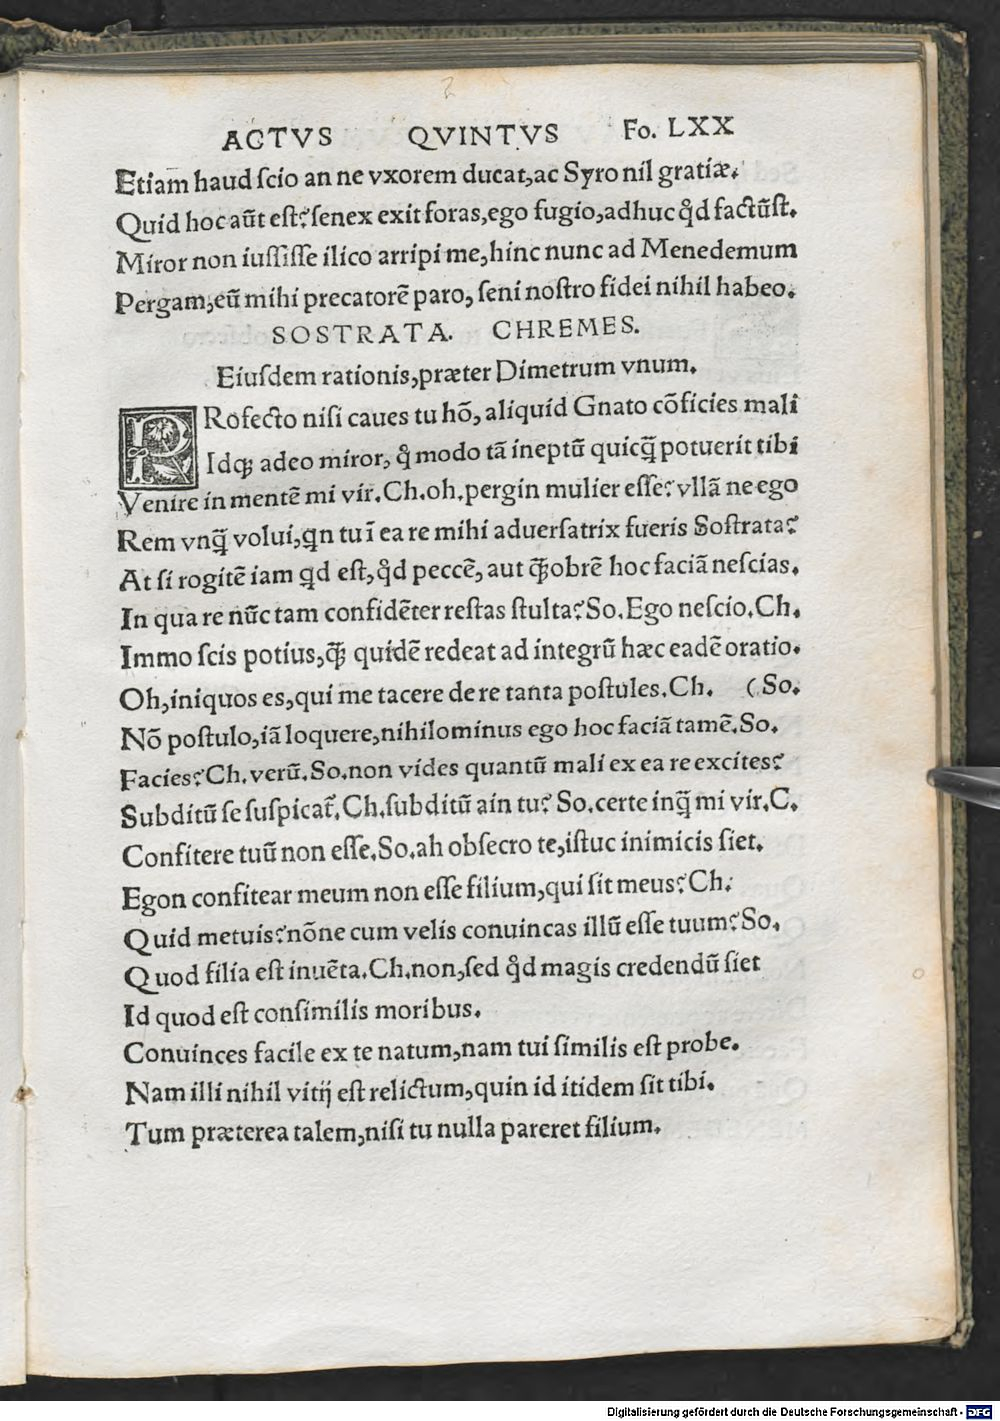 ACTVS QVINTVS Fo. LXX
Etiam haud ſcio an ne vxorem ducat,ac Syro nil gratiæ.
Quid hoc aũt eſt?ſenex exit foras,ego fugio,adhuc qd̉ factũſt.
Miror non iuſſiſſe ilico arripi me,hinc nunc ad Menedemum
Pergam,eũ mihi precatorẽ paro, ſeni noſtro fidei nihil habeo.
SOSTRATA. CHREMES.
Eiuſdem rationis,præter Dimetrum vnum.
PRofecto niſi caues tu hõ, aliquid Gnato cõficies mali
Idq; adeo miror, q̉ modo tã ineptũ quicq̃ potuerit tibi
Venire in mentẽ mi vir.Ch.oh.pergin mulier eſſe? vllã ne ego
Rem vnq̃ volui,qn tu ĩ ea re mihi aduerſatrix fueris Soſtrata?
At ſi rogitẽ iam qd eſt,qd̉ peccẽ, aut q̃obrẽ hoc faciã neſcias.
In qua re nũc tam confidẽter reſtas ſtulta? So.Ego neſcio.Ch.
Immo ſcis potius,q̃ quidẽ redeat ad integrũ hæc eadẽ oratio.
Oh,iniquos es,qui me tacere de re tanta poſtules.Ch. (So.
Nõ poſtulo,iã loquere,nihilominus ego hoc faciã tamẽ.So.
Facies?Ch.verũ.So.non vides quantũ mali ex ea re excites?
Subditũ ſe ſuſpicat̃.Ch.ſubditũ ain tu? So.certe inq̃ mi vir.C.
Confitere tuũ non eſſe.So.ah obſecro te,iſtuc inimicis ſiet.
Egon confitear meum non eſſe filium,qui ſit meus?Ch.
Quid metuis?nõne cum velis conuincas illũ eſſe tuum?So.
Quod filia eſt inuẽta.Ch.non,ſed qd̉ magis credendũ ſiet
Id quod eſt conſimilis moribus.
Conuinces facile ex te natum,nam tui ſimilis eſt probe.
Nam illi nihil vitij eſt relictum,quin id itidem ſit tibi.
Tum præterea talem,niſi tu nulla pareret filium.
Digitalisierung gefördert durch die Deutsche Forschungsgemeinschaft - DFG